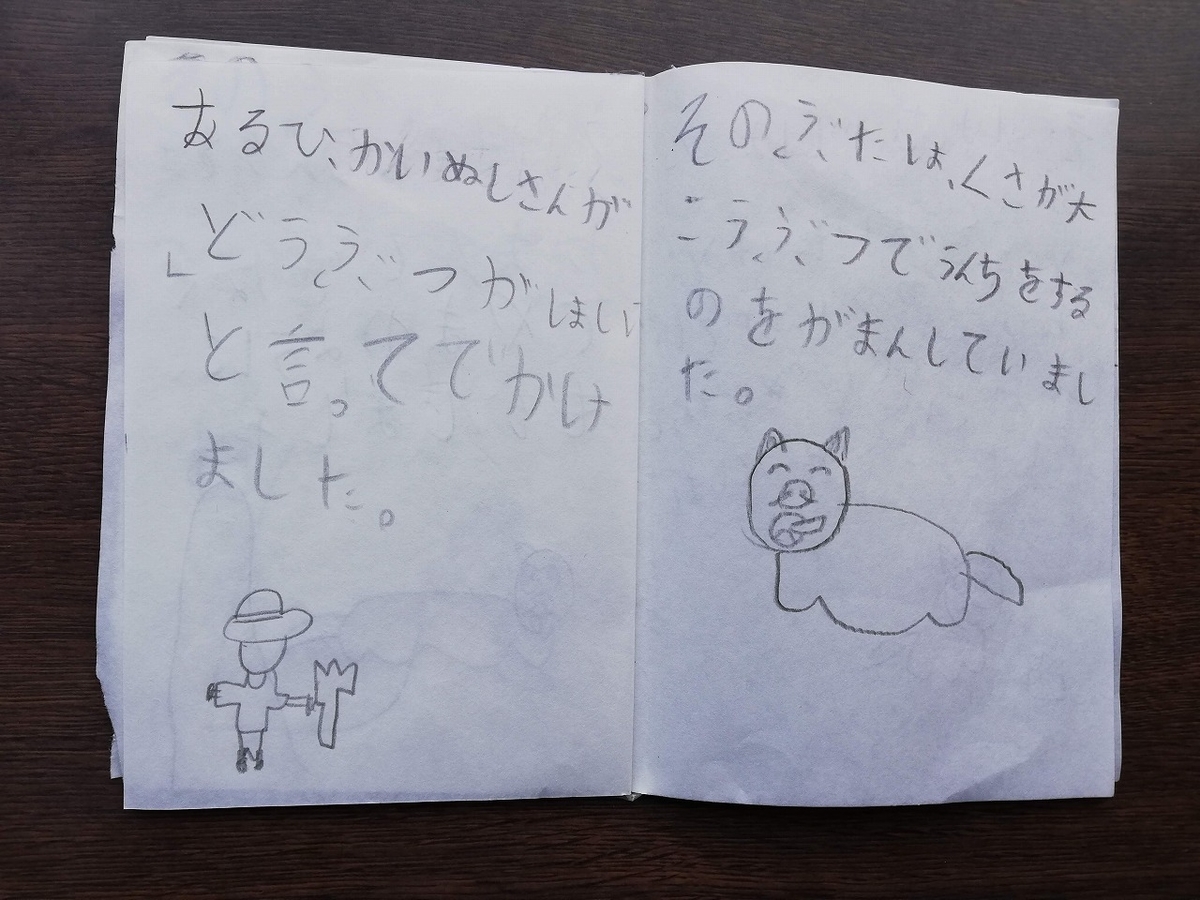 あるひ、かいぬしさんが
」どうぶつがほしい
と言ってでかけ
ました。
そのぶたは、くさが大
こうぶつでうんちをする
のをがまんしていまし
た。